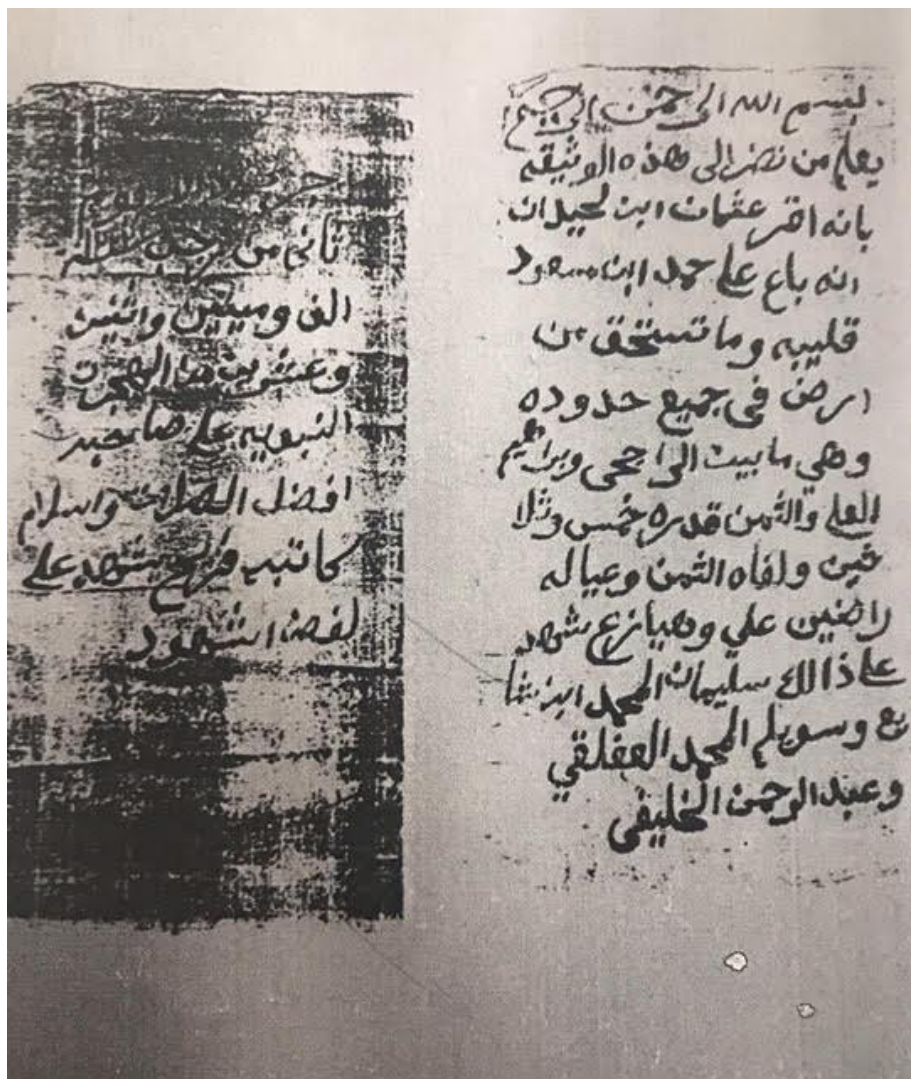 بسم الله الرحمن الرحيم
يعلم من نضر الى هذه الوثيقه
بانه اقر عثمان ابن لحيدان
انه باع على حمد ابن سعود
قليبه وما تستحق من
ارض في جميع حدوده
وهي مابين الراجحي وبراهيم
العلي والثمن قدره خمس وثلا
ثين ولفاه الثمن وعياله
راضين علي وهيازع شهد
على ذالك سليمان المحمد ابن شا
يع وسويلم المحمد العفلقي
وعبد الرحمن الخليفي
ثاني من رجب
الف وميتين واثنين
وعشرين من الهجرت
النبويه على صاحبه
افضل الصلات واسلام
كاتبه يشهد على
لفض الشهود